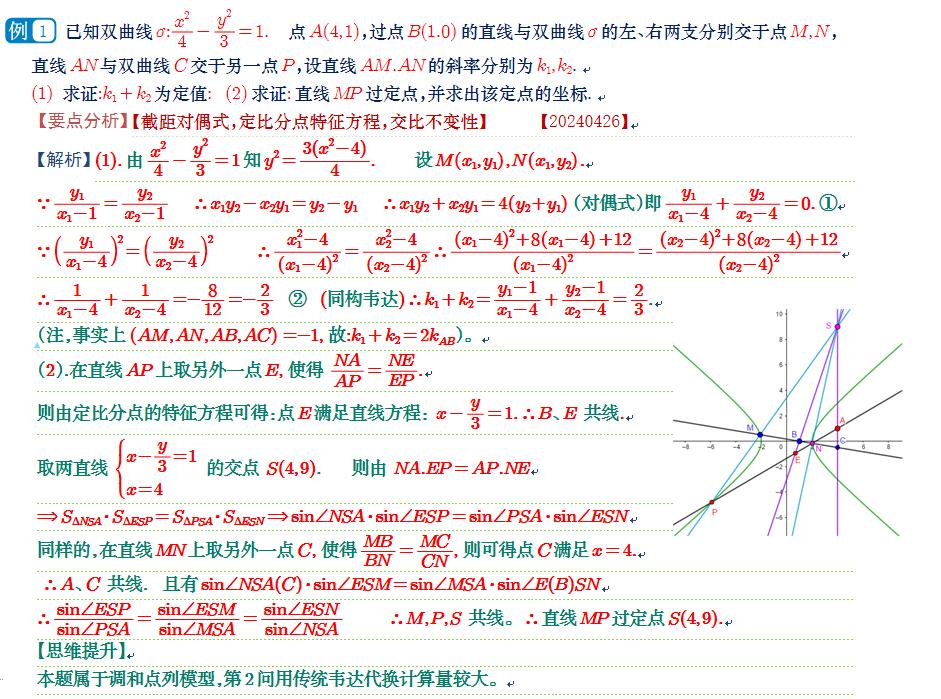 例1 已知双曲线σ:x²/4 − y²/3 = 1. 点A(4,1),过点B(1.0)的直线与双曲线σ的左、右两支分别交于点M,N,
直线AN与双曲线C交于另一点P,设直线AM.AN的斜率分别为k₁,k₂.
(1) 求证:k₁+k₂为定值: (2)求证:直线MP过定点,并求出该定点的坐标.
【要点分析】【截距对偶式,定比分点特征方程,交比不变性】 【20240426】
【解析】(1).由 x²/4 − y²/3 = 1 知 y² = 3(x²−4)/4. 设M(x₁,y₁),N(x₁,y₂).
∵ y₁/(x₁−1) = y₂/(x₂−1) ∴x₁y₂−x₂y₁=y₂−y₁ ∴x₁y₂+x₂y₁=4(y₂+y₁) (对偶式)即 y₁/(x₁−4) + y₂/(x₂−4) =0.①
∵(y₁/(x₁−4))² = (y₂/(x₂−4))² ∴ (x₁²−4)/(x₁−4)² = (x₂²−4)/(x₂−4)² ∴ ((x₁−4)²+8(x₁−4)+12)/(x₁−4)² = ((x₂−4)²+8(x₂−4)+12)/(x₂−4)²
∴ 1/(x₁−4) + 1/(x₂−4) = −8/12 = −2/3 ② (同构韦达)∴k₁+k₂ = (y₁−1)/(x₁−4) + (y₂−1)/(x₂−4) = 2/3.
(注,事实上(AM,AN,AB,AC)=−1,故:k₁+k₂=2k_AB)。
(2).在直线AP上取另外一点E,使得 NA/AP = NE/EP.
则由定比分点的特征方程可得:点E满足直线方程: x − y/3 = 1.∴B、E 共线.
取两直线 { x − y/3 = 1
x=4 的交点 S(4,9). 则由 NA.EP=AP.NE
⟹S_ΔNSA·S_ΔESP=S_ΔPSA·S_ΔESN⟹sin∠NSA·sin∠ESP=sin∠PSA·sin∠ESN
同样的,在直线MN上取另外一点C,使得 MB/BN = MC/CN,则可得点C满足x=4.
∴A、C 共线. 且有sin∠NSA(C)·sin∠ESM=sin∠MSA·sin∠E(B)SN
∴ sin∠ESP/sin∠PSA = sin∠ESM/sin∠MSA = sin∠ESN/sin∠NSA ∴M,P,S 共线。∴直线MP过定点S(4,9).
【思维提升】
本题属于调和点列模型,第2问用传统韦达代换计算量较大。
10
S
8
6
4
2
M
B
A
C
−8 −6 −4 −2 0 2 6 8
N
E
−2
−4
P
−6